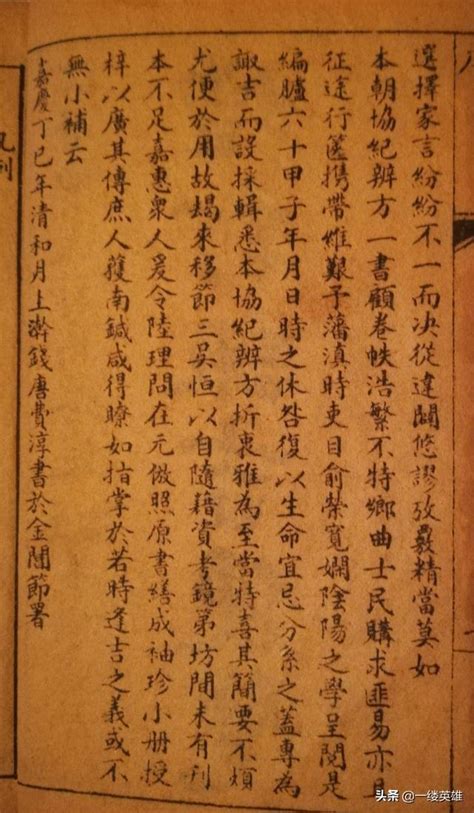 選擇家言紛紛不一而决從違闢悠謬攷覈精當莫如
本朝協紀辨方一書顧卷帙浩繁不特鄉曲士民購求匪易亦且
征途行篋携帶維艱予藩滇時吏目俞榮寬嫻陰陽之學呈閱是
編臚六十甲子年月日時之休咎復以生命宜忌分系之蓋專為
諏吉而設採輯悉本協紀辨方折衷雅為至當特喜其簡要不煩
尤便於用故朅來移節三吳恒以自隨藉資考鏡第坊間未有刊
本不足嘉惠衆人爰令陸理問在元倣照原書繕成袖珍小册授
梓以廣其傳庶人獲南鍼咸得瞭如指掌於若時逢吉之義或不
無小補云
嘉慶丁巳年清和月上澣錢唐費淳書於金閶節署
凡例
头条 @一缕英雄